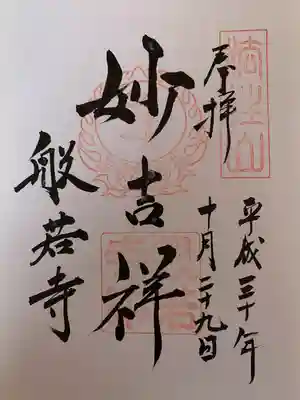 奉拝
平成三十年
十月二十九日
妙吉祥
般若寺
法性山